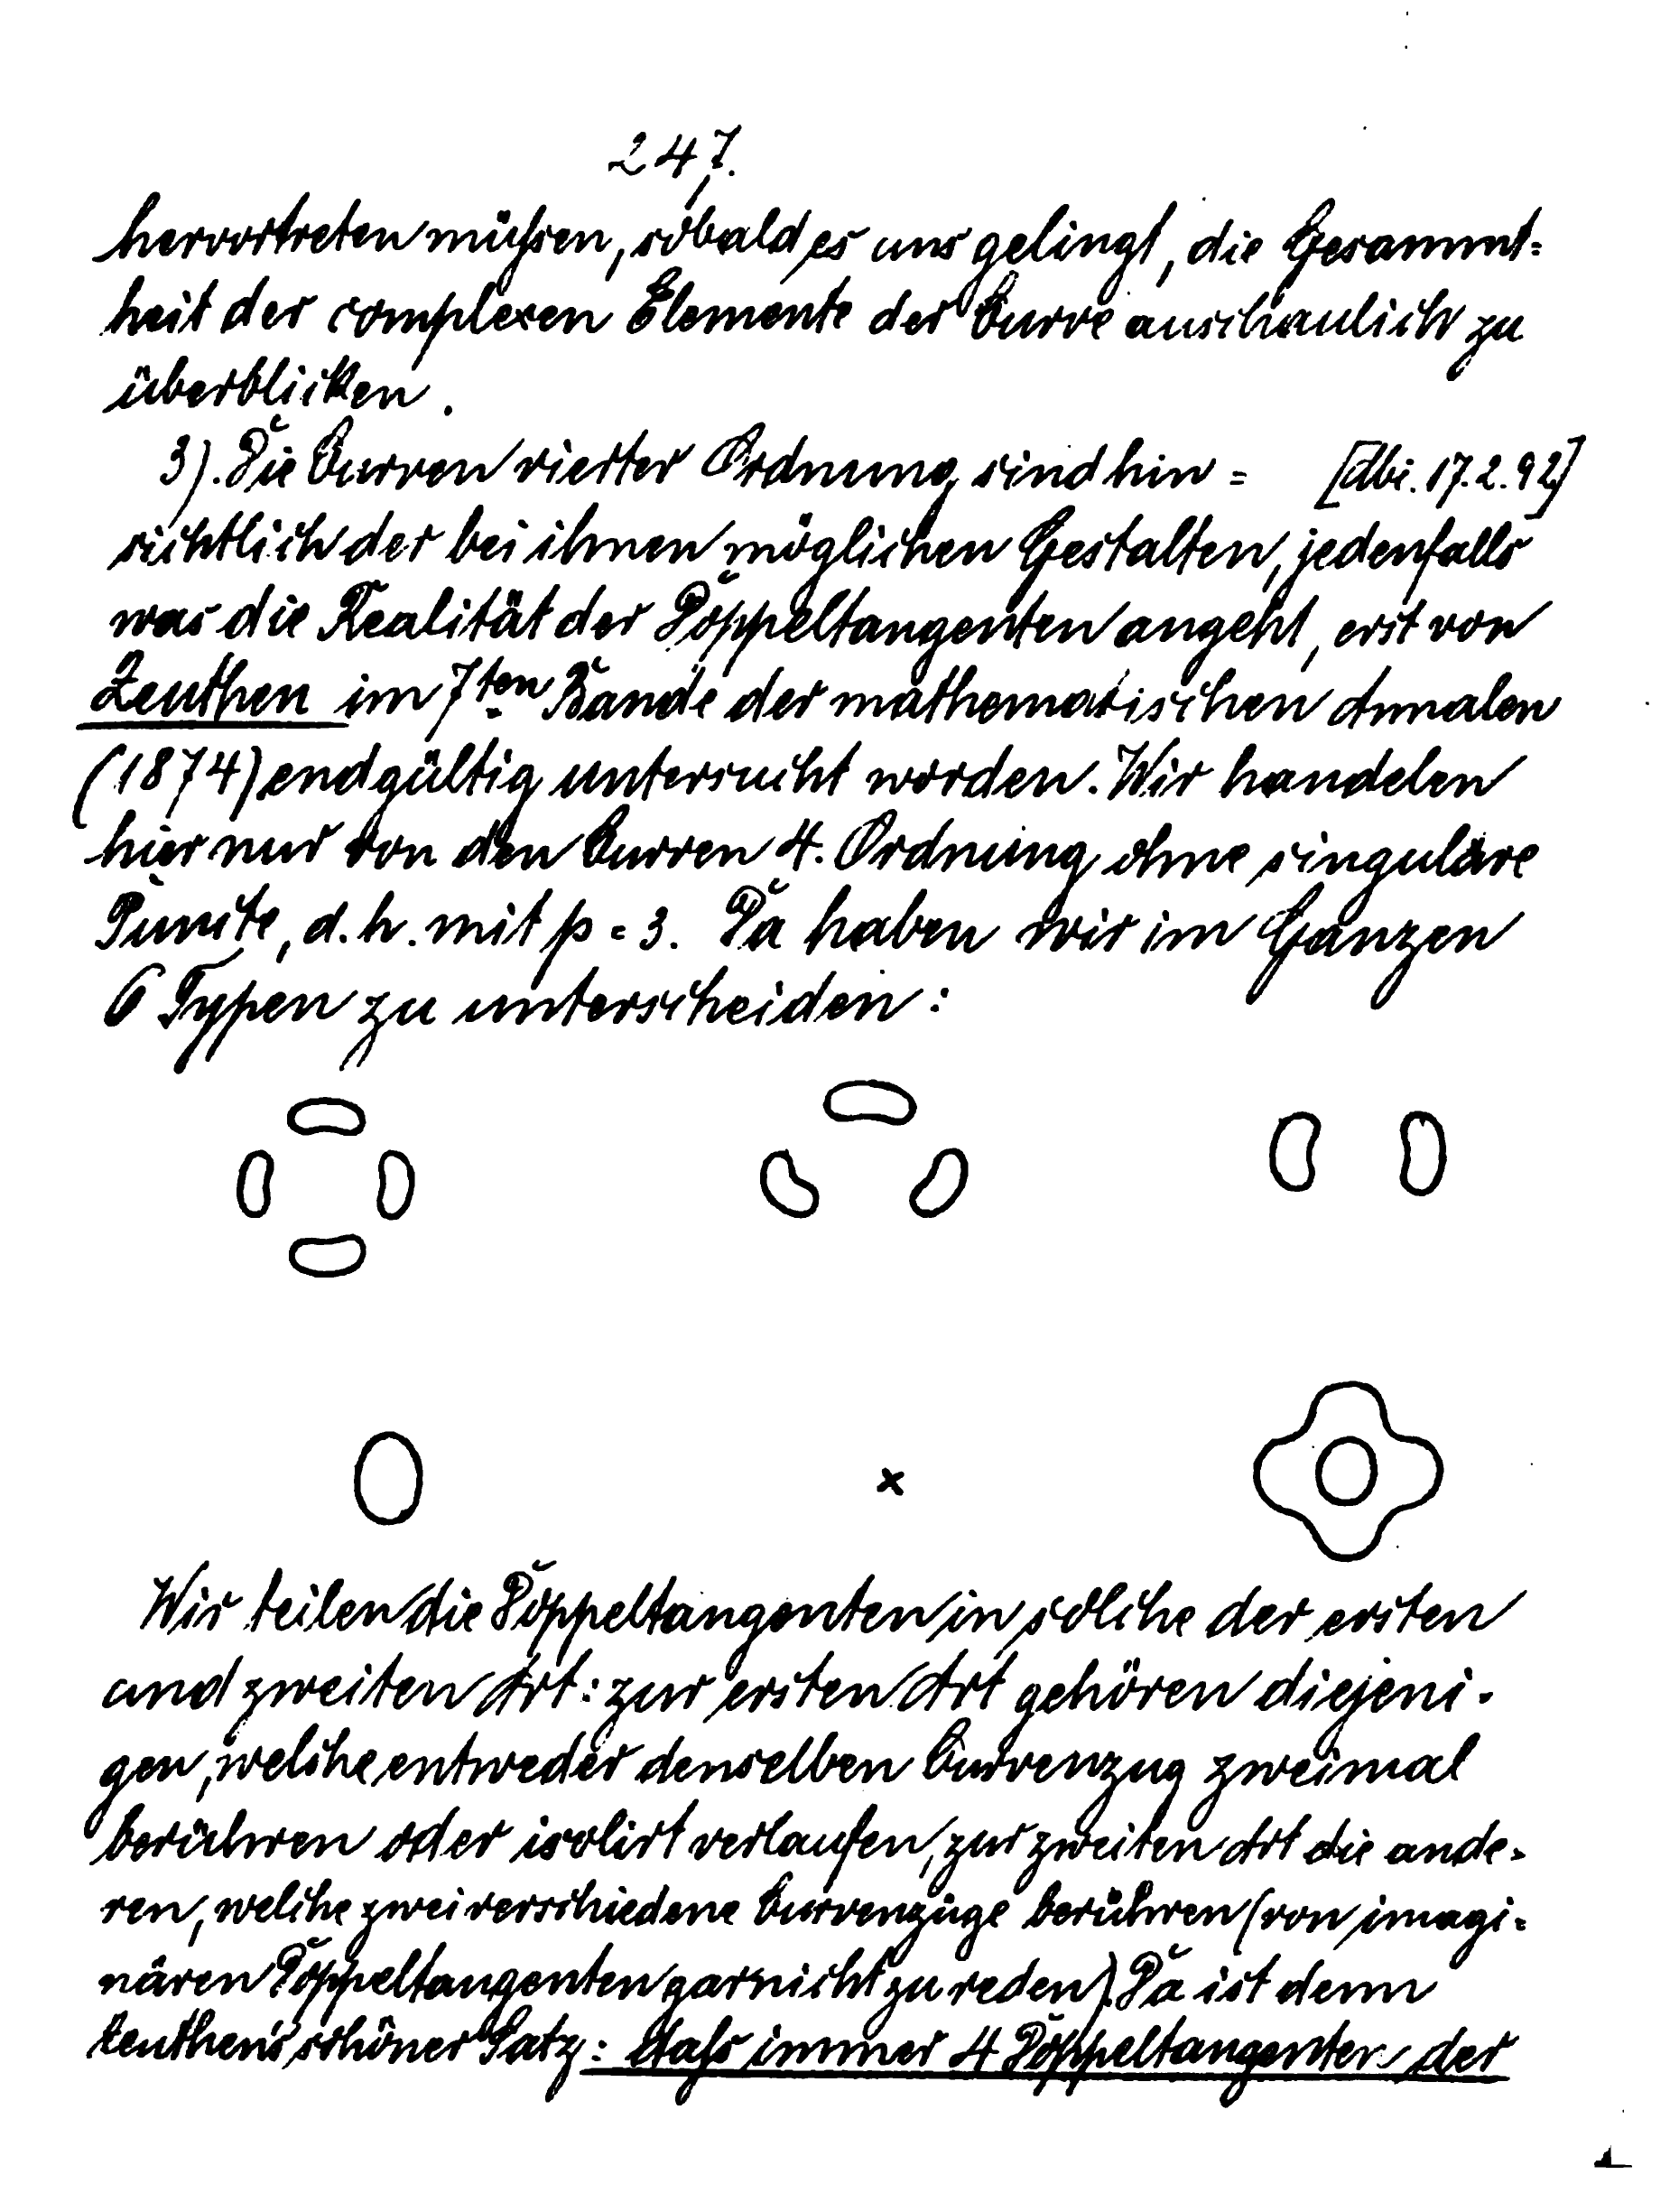 247.
hervortreten müssen, sobald es uns gelingt, die Gesammt=
heit der complexen Elemente der Curve anschaulich zu
überblicken.
3). Die Curven vierter Ordnung sind hin= [Mi. 17.2.92]
sichtlich der bei ihnen möglichen Gestalten, jedenfalls
was die Realität der Doppeltangenten angeht, erst von
Zeuthen im 7ten Bande der mathematischen Annalen
(1874) endgültig untersucht worden. Wir handelen
hier nur von den Curven 4. Ordnung ohne singuläre
Puncte, d.h. mit p=3. Da haben wir im Ganzen
6 Typen zu unterscheiden:
x
Wir teilen die Doppeltangenten in solche der ersten
und zweiten Art: zur ersten Art gehören diejeni-
gen, welche entweder denselben Curvenzug zweimal
berühren oder isolirt verlaufen, zur zweiten Art die ande-
ren, welche zwei verschiedene Curvenzüge berühren (von imagi-
nären Doppeltangenten garnicht zu reden). Da ist denn
Zeuthen's schöner Satz: dass immer 4 Doppeltangenten der